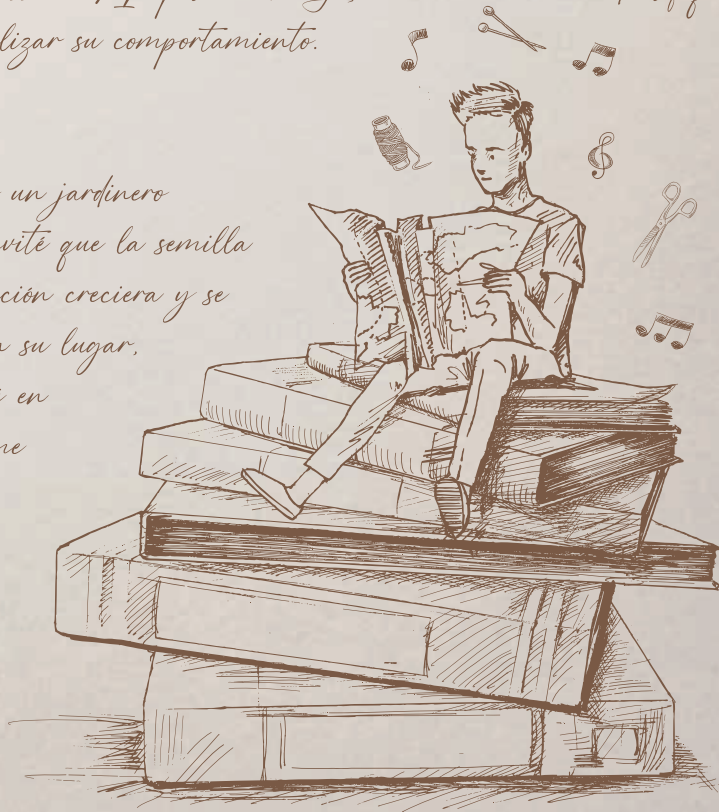 lizar su comportamiento.
un jardinero
vité que la semilla
ción creciera y se
su lugar,
en